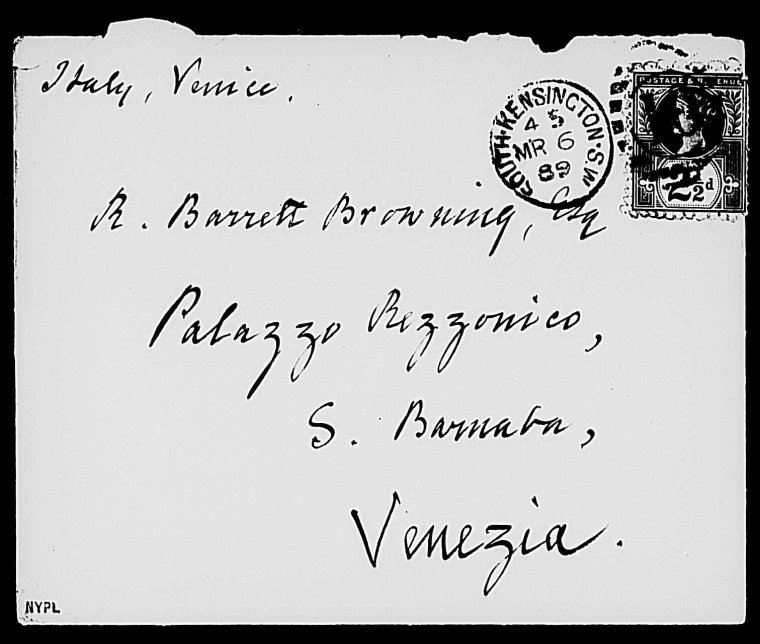 Italy, Venice.
SOUTH·KENSINGTON·S.W
4 5
MR 6
89
POSTAGE & REVENUE
2½d
R. Barrett Browning, Esq
Palazzo Rezzonico,
S. Barnaba,
Venezia.
NYPL